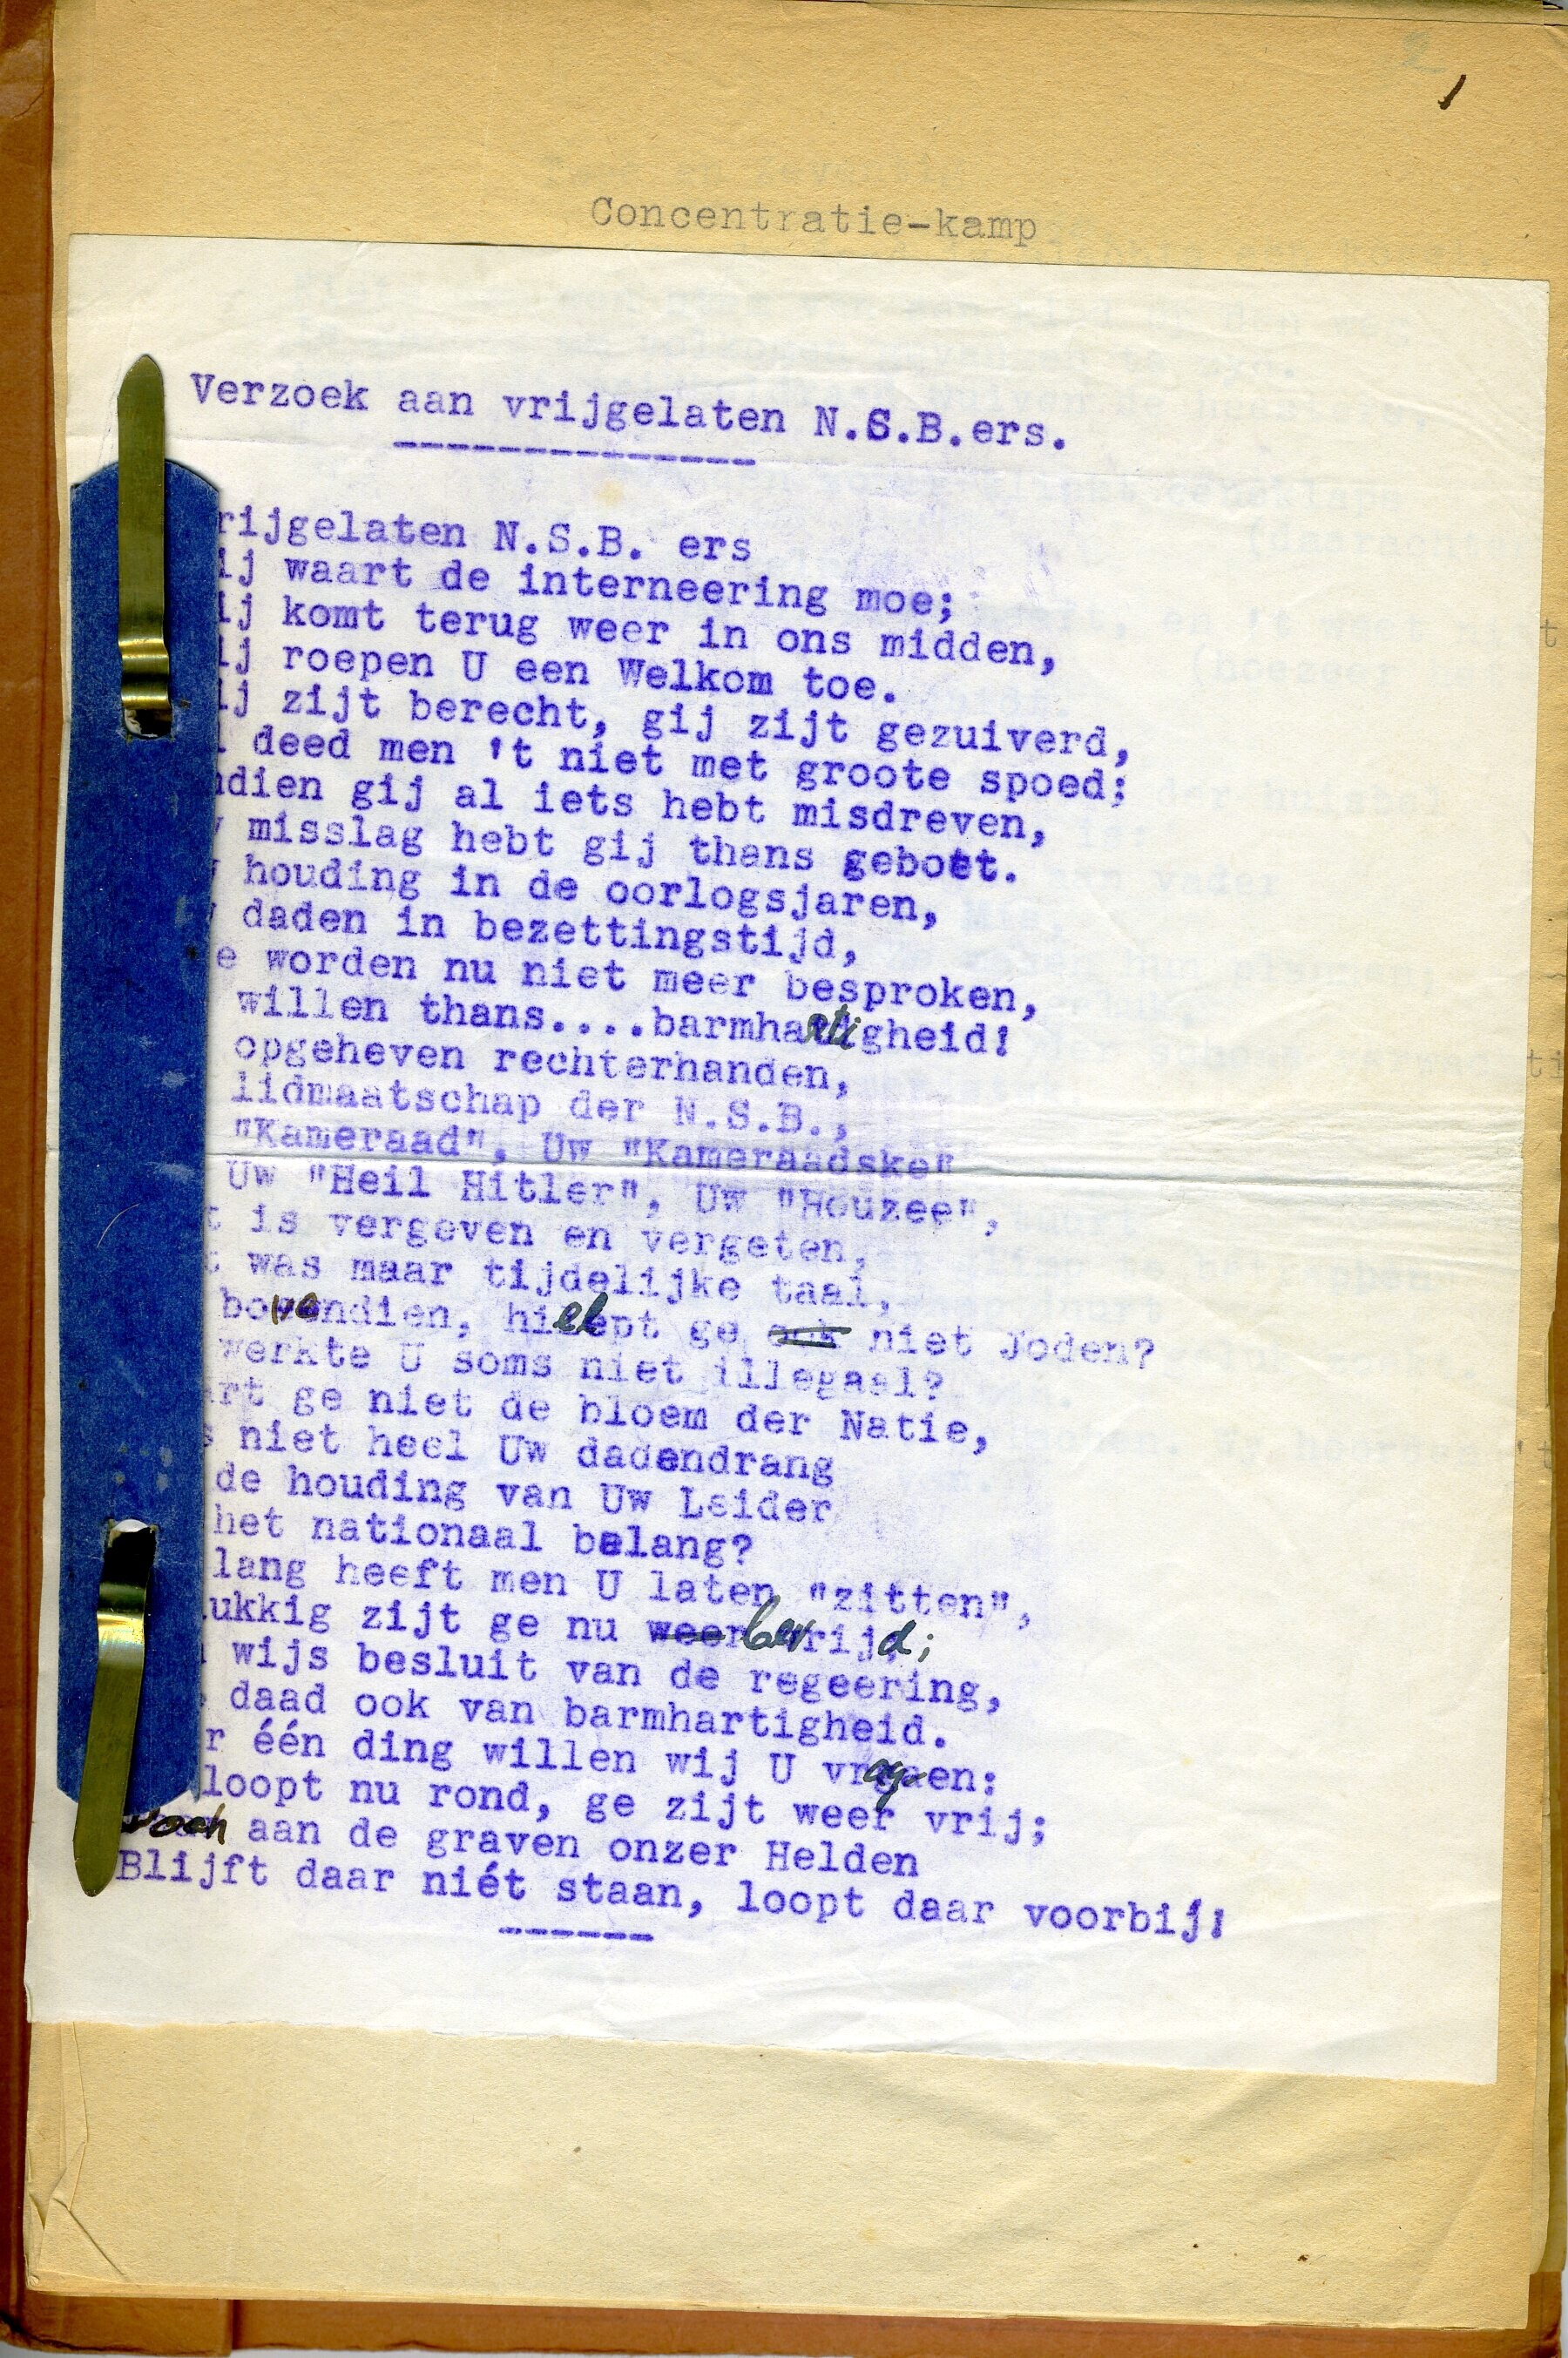 1
Concentratie-kamp
Verzoek aan vrijgelaten N.S.B.ers.
rijgelaten N.S.B. ers
ij waart de interneering moe;
ij komt terug weer in ons midden,
ij roepen U een Welkom toe.
ij zijt berecht, gij zijt gezuiverd,
deed men 't niet met groote spoed;
ndien gij al iets hebt misdreven,
misslag hebt gij thans geboet.
houding in de oorlogsjaren,
daden in bezettingstijd,
e worden nu niet meer besproken,
willen thans....barmhartigheid!
opgeheven rechterhanden,
lidmaatschap der N.S.B.,
"Kameraad", Uw "Kameraadske"
Uw "Heil Hitler", Uw "Houzee",
t is vergeven en vergeten,
t was maar tijdelijke taal,
bovendien, hielpt ge ook niet Joden?
werkte U soms niet illegaal?
rt ge niet de bloem der Natie,
s niet heel Uw dadendrang
de houding van Uw Leider
het nationaal belang?
lang heeft men U laten "zitten",
lukkig zijt ge nu weer bevrijd;
wijs besluit van de regeering,
daad ook van barmhartigheid.
r één ding willen wij U vragen:
loopt nu rond, ge zijt weer vrij;
Doch aan de graven onzer Helden
Blijft daar niét staan, loopt daar voorbij!